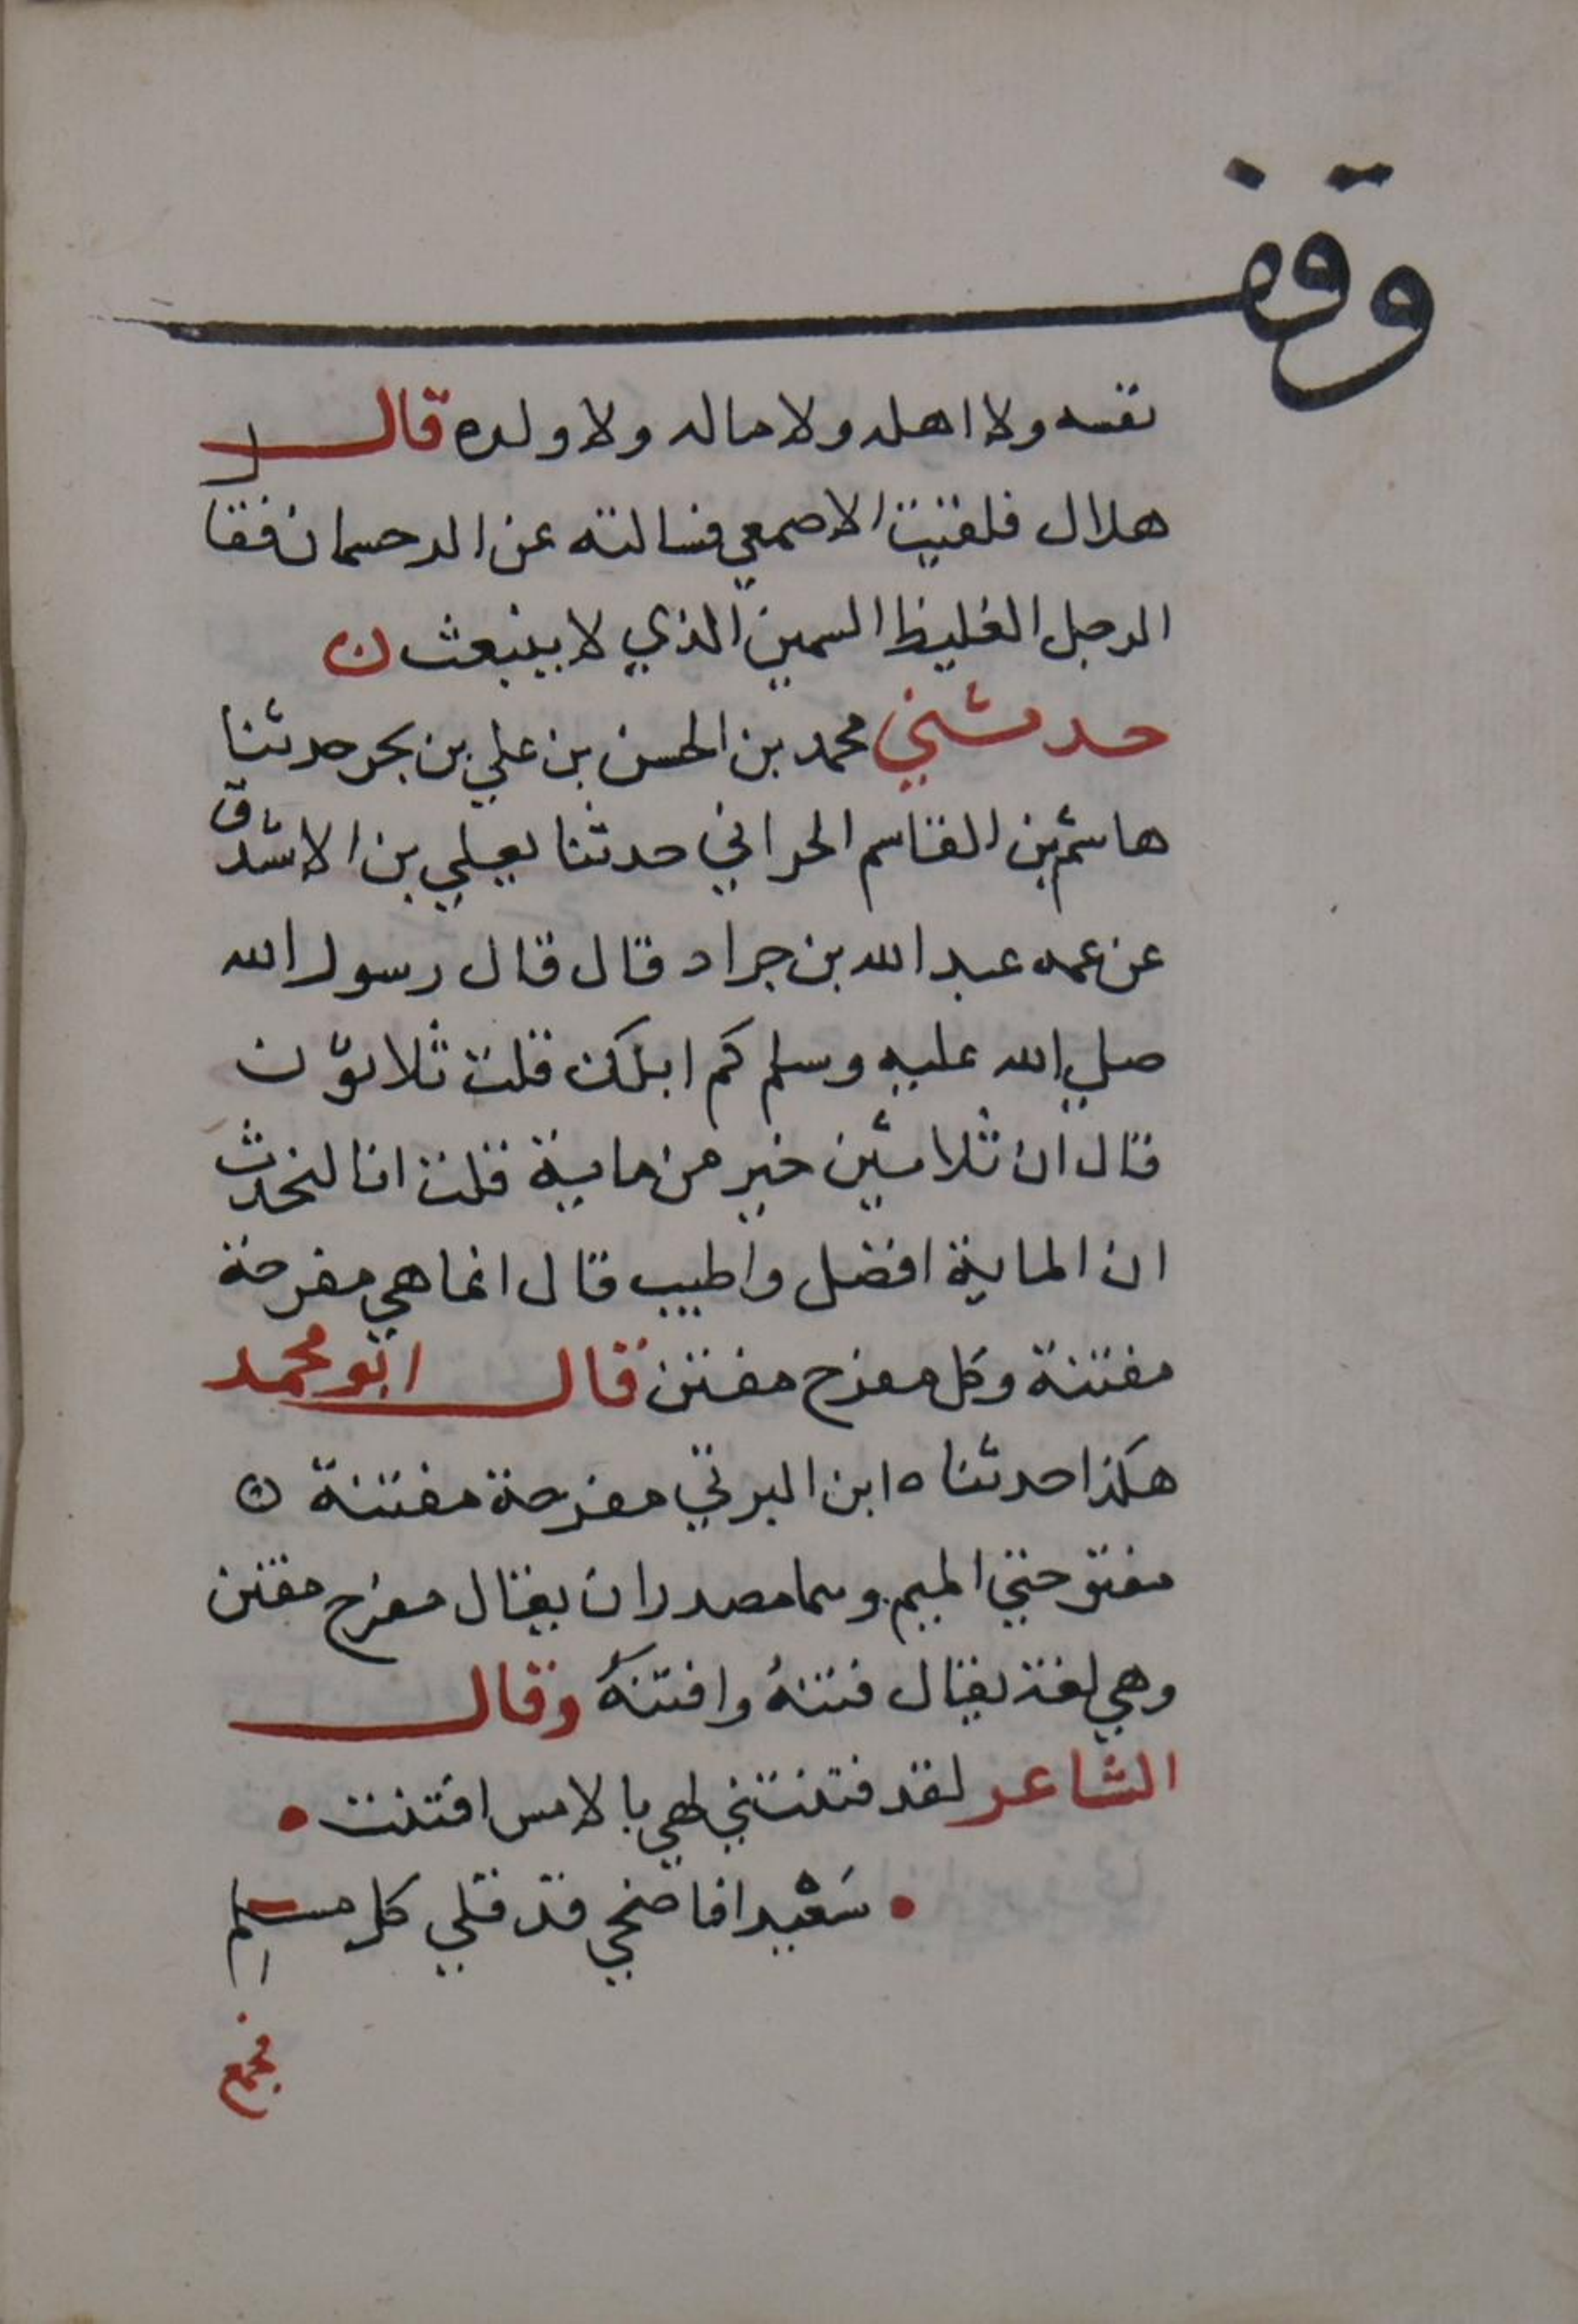 وقف
نفسه ولا اهله ولا ماله ولا ولده قال
هلال فلقيت الاصمعي فسالته عن الدحسمان فقا
الرجل الغليظ السمين الذي لا ينبعث ن
حدثني محمد بن الحسن بن علي بن بحر حدثنا
هاشم بن القاسم الحراني حدثنا يعلي بن الاشدق
عن عمه عبد الله بن جراد قال قال رسول الله
صلي الله عليه وسلم كم ابلك قلت ثلاثون
قال ان ثلاثين خير من ماية قلت انا لنحدث
ان الماية افضل واطيب قال انما هي مفرحة
مفتنة وكل مفرح مفتن قال ابو محمد
هكذا حدثناه ابن البرتي مفرحة مفتنة ن
مفتوحتي الميم وهما مصدران يقال مفرح مفتن
وهي لغة يقال فتنهُ وافتنهُ وقال
الشاعر لقد فتنتني لهي بالامس افتنت •
• سَعْيدا فاضحي قد قلي كل مسلم
فجمع